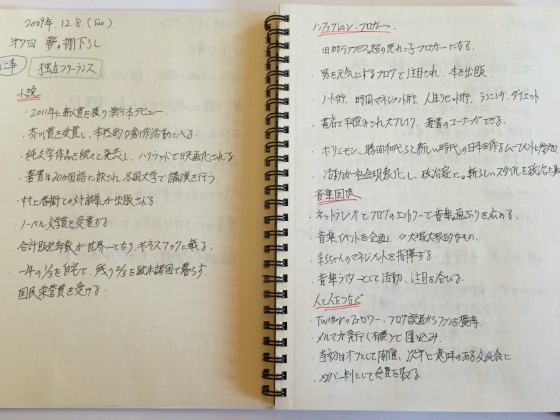 2009年.12.8 (Tue)
第7回 夢の棚下ろし
仕事 独占フリーランス
小説
・2011年に新人賞を獲り新作デビュー
・芥川賞を受賞し、本格的な創作活動に入る
・純文学作品を続々と発表し、ハリウッドで映画化される
・著書は20カ国語に訳され、各国大学で講演を行う
・村上春樹との対談集が出版される
・ノーベル文学賞を受賞する
合計販売部数が世界一となり、ギネスブックに載る
・一年の1/3を自宅で、残り2/3を欧米諸国で暮らす
国民栄誉賞を受ける
ノンフィクション・ブロガー
・1日10万アクセス超の売れっ子ブロガーになる
・男を元気にするブログで注目され、本を出版
・ノート術、時間マネジメント術、人生リセット術、ランニング、ダイエット
・書店で平積みされ大ブレイク、著書のコーナーができる
・ホリエモン、勝間和代らと新しい時代の日本を作る
・活動が社会現象化し、政治家に。新しいスタイルを政治に
音楽関係
・ネットラジオとブログのエントリーで音楽通ぶりを広める
・音楽イベントを企画
のマネジメントを指揮する
・音楽ライターとして活動、注目を浴びる
人と人をつなぐ
・Twitterのフォロワー、ブログ読者からファンを獲得
・メルマガ発行(有償)で囲い込み
・当初はオフとして開催、次第に意味のある交流会に
・メンバー制として会費を取る